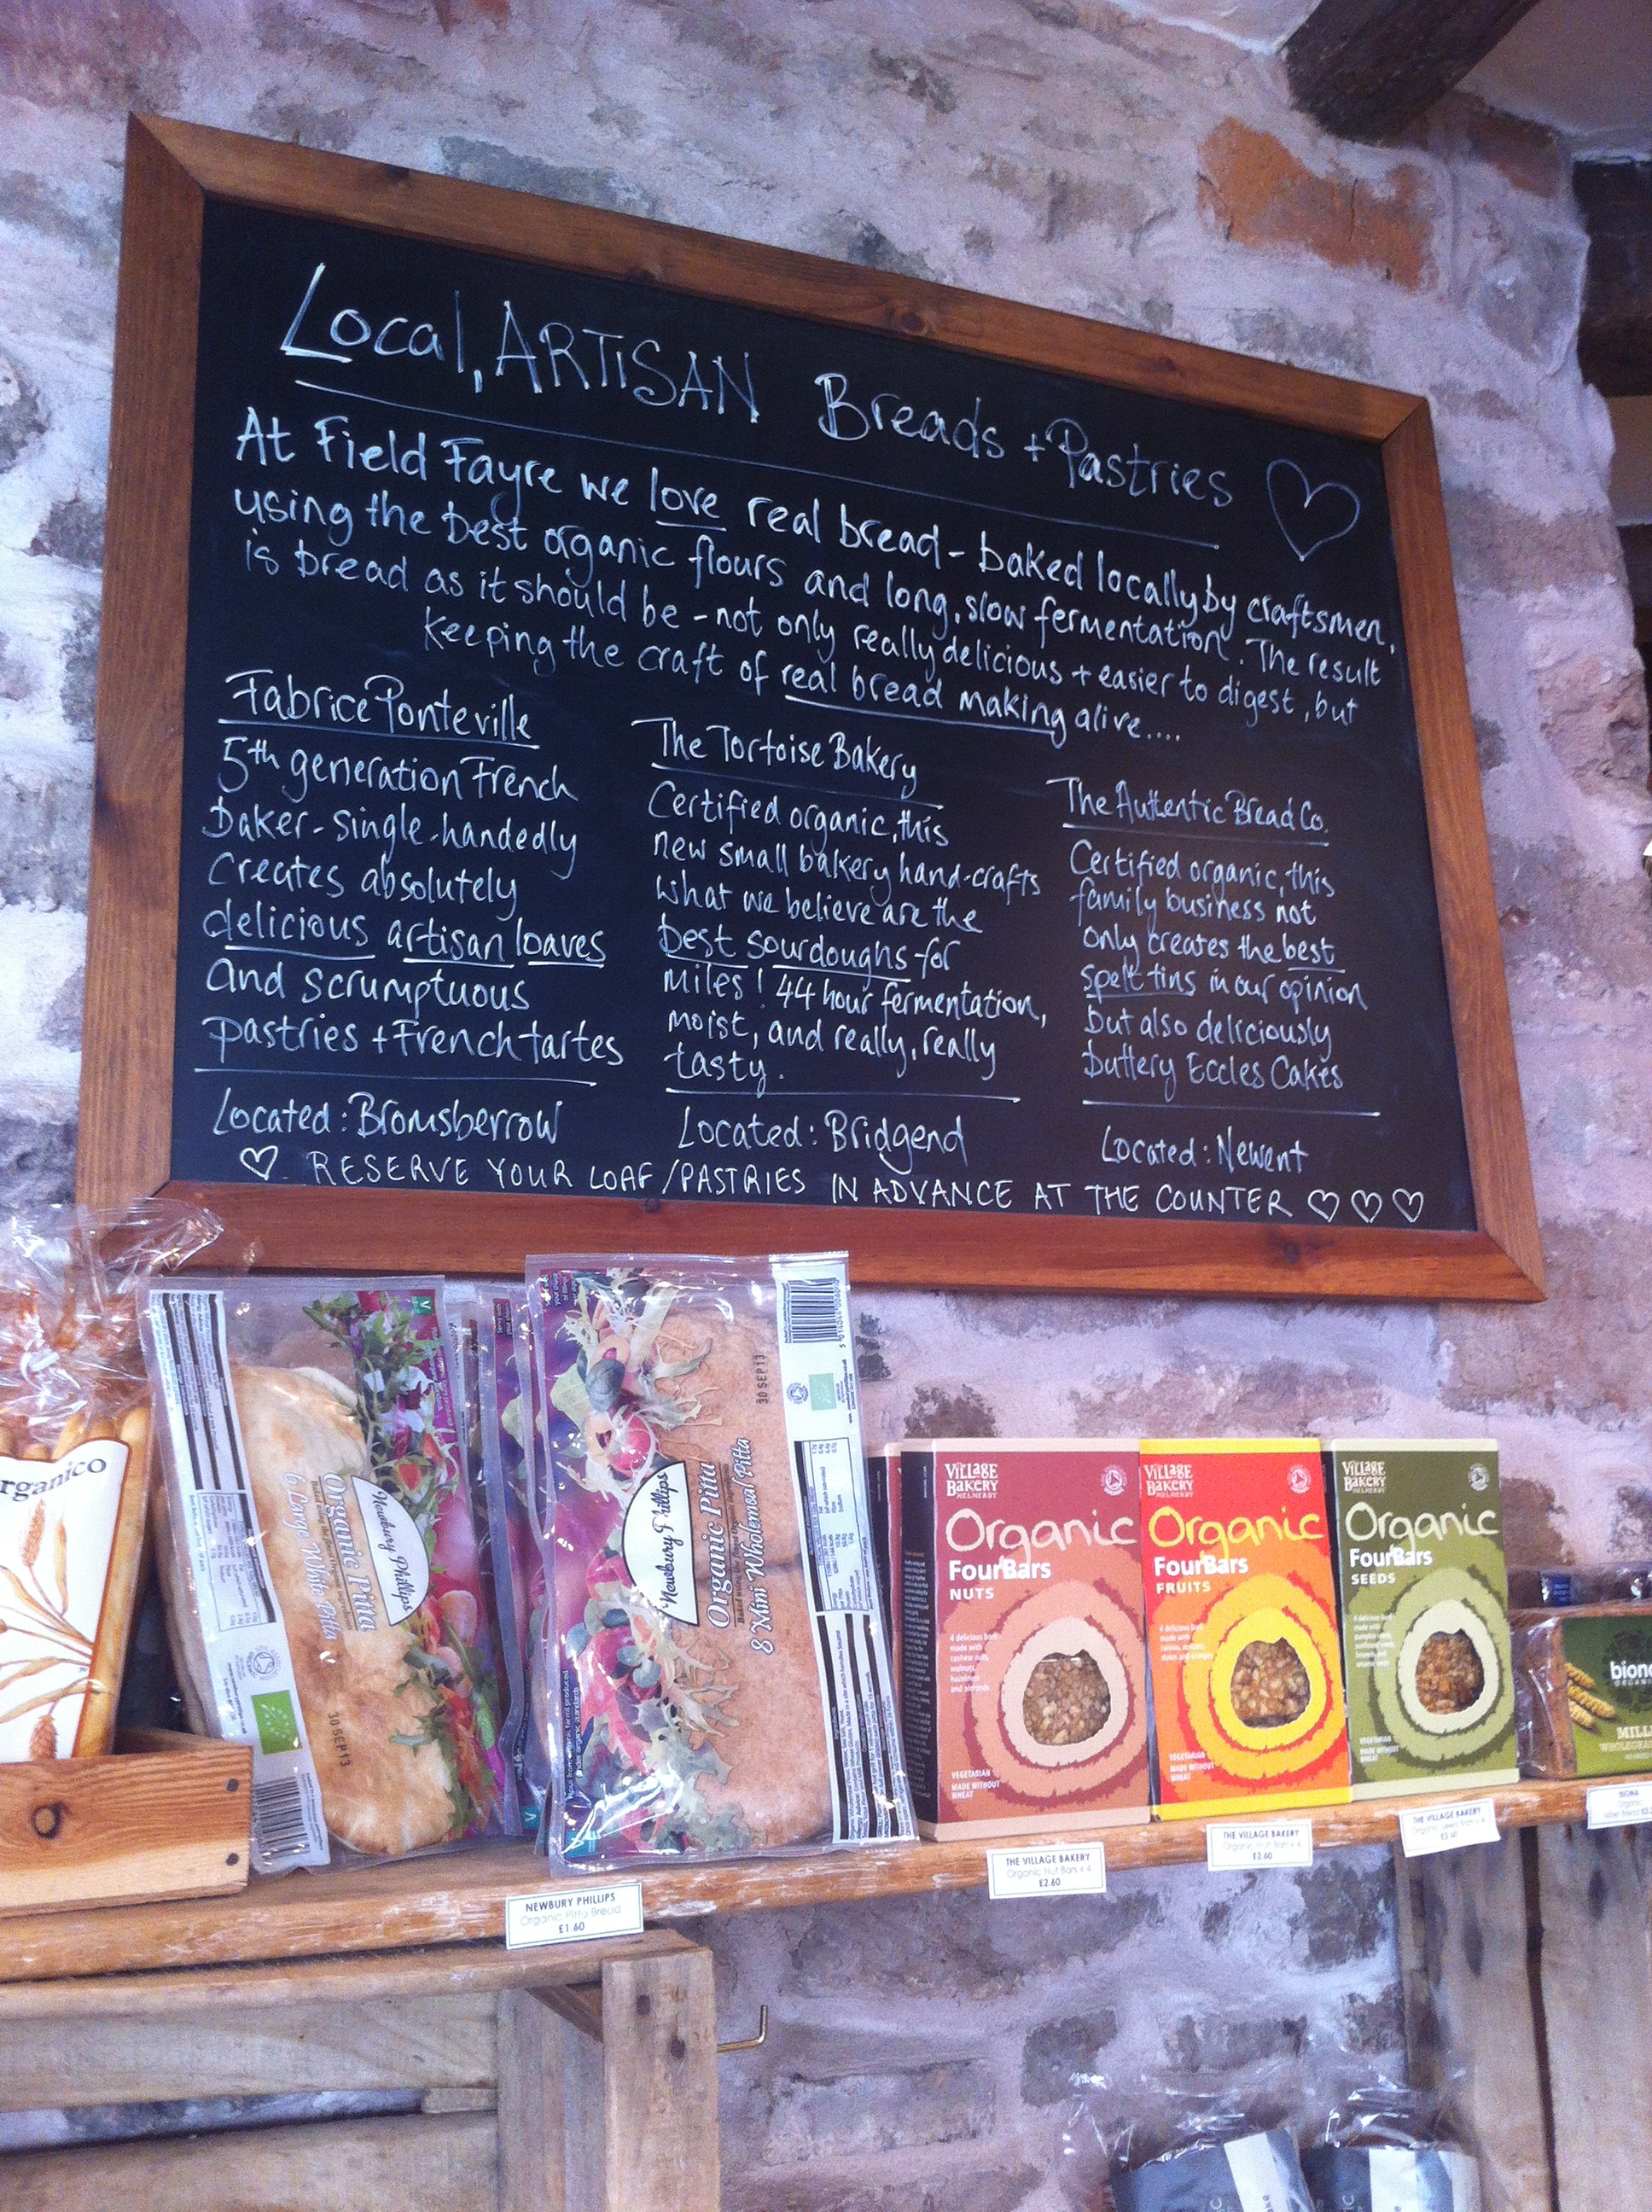 Local, ARTISAN Breads + Pastries
At Field Fayre we love real bread - baked locally by craftsmen,
using the best organic flours and long, slow fermentation. The result
is bread as it should be - not only really delicious + easier to digest, but
keeping the craft of real bread making alive....
Fabrice Ponteville
5th generation French
baker - single-handedly
creates absolutely
delicious artisan loaves
and scrumptuous
pastries + French tartes
Located: Bromsberrow
The Tortoise Bakery
Certified organic, this
new small bakery hand-crafts
what we believe are the
best sourdoughs for
miles! 44 hour fermentation,
moist, and really, really
tasty.
Located: Bridgend
The Authentic Bread Co.
Certified organic, this
family business not
only creates the best
spelt tins in our opinion
but also deliciously
buttery Eccles Cakes
Located: Newent
RESERVE YOUR LOAF/PASTRIES IN ADVANCE AT THE COUNTER
rganico
Newbury Phillips
Organic Pitta
6 Large White Pitta
30 SEP 13
Newbury Phillips
Organic Pitta
8 Mini Wholemeal Pitta
30 SEP 13
VILLAGE
BAKERY
MELMERBY
Organic
FourBars
NUTS
4 delicious bars
made with
cashew nuts,
walnuts,
hazelnuts
and almonds
VEGETARIAN
MADE WITHOUT
WHEAT
VILLAGE
BAKERY
MELMERBY
Organic
FourBars
FRUITS
4 delicious bars
made with
VEGETARIAN
MADE WITHOUT
WHEAT
VILLAGE
BAKERY
MELMERBY
Organic
FourBars
SEEDS
4 delicious bars
made with
VEGETARIAN
MADE WITHOUT
WHEAT
biona
ORGANIC
MILL
NEWBURY PHILLIPS
Organic Pitta Bread
£1.60
THE VILLAGE BAKERY
Organic Nut Bars x 4
£2.60
THE VILLAGE BAKERY
Organic Fruit Bars x 4
£2.60
THE VILLAGE BAKERY
Organic Seed Bars x 4